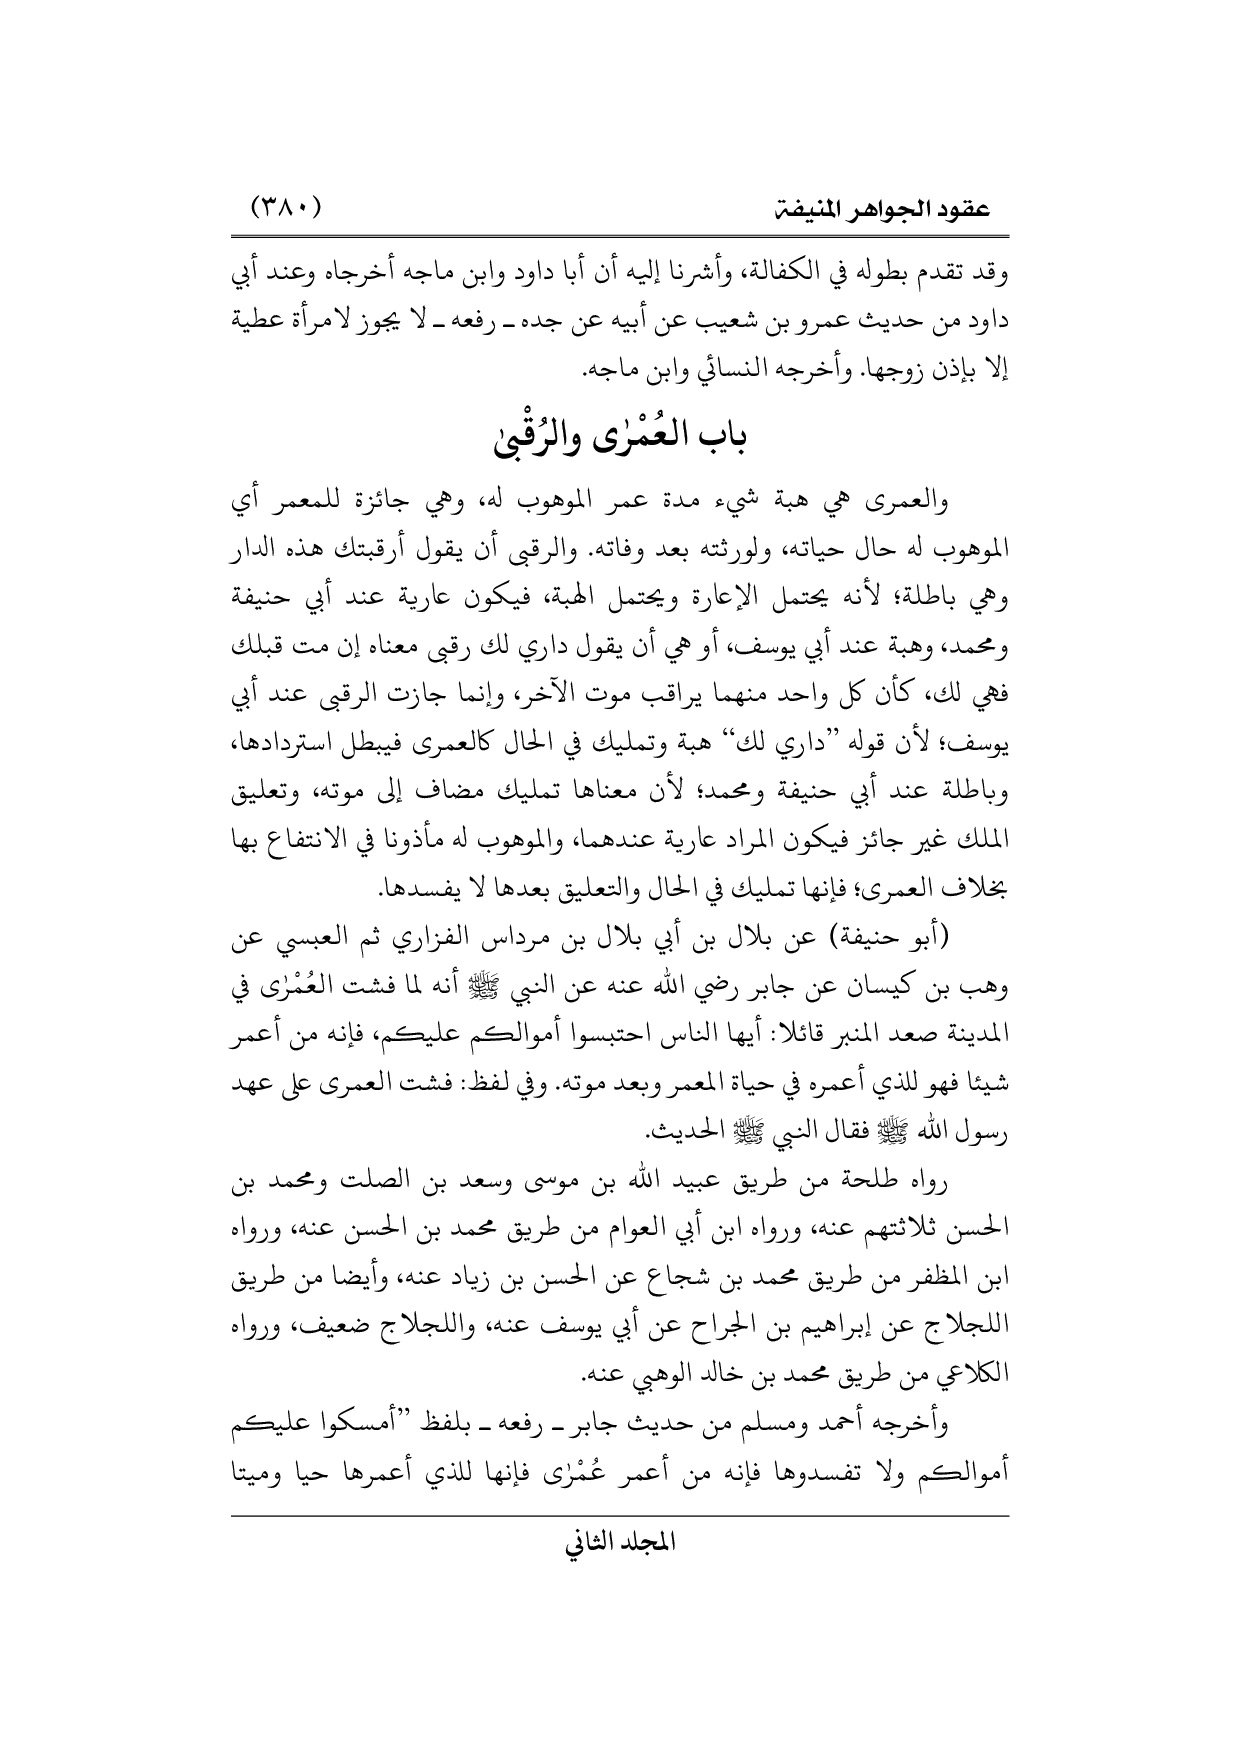 عقود الجواهر المنيفة (٣٨٠)
وقد تقدم بطوله في الكفالة، وأشرنا إليه أن أبا داود وابن ماجه أخرجاه وعند أبي
داود من حديث عمرو بن شعيب عن أبيه عن جده ـ رفعه ـ لا يجوز لامرأة عطية
إلا بإذن زوجها. وأخرجه النسائي وابن ماجه.
باب العُمْرٰى والرُقْبىٰ
والعمرى هي هبة شيء مدة عمر الموهوب له، وهي جائزة للمعمر أي
الموهوب له حال حياته، ولورثته بعد وفاته. والرقبى أن يقول أرقبتك هذه الدار
وهي باطلة؛ لأنه يحتمل الإعارة ويحتمل الهبة، فيكون عارية عند أبي حنيفة
ومحمد، وهبة عند أبي يوسف، أو هي أن يقول داري لك رقبى معناه إن مت قبلك
فهي لك، كأن كل واحد منهما يراقب موت الآخر، وإنما جازت الرقبى عند أبي
يوسف؛ لأن قوله ”داري لك“ هبة وتمليك في الحال كالعمرى فيبطل استردادها،
وباطلة عند أبي حنيفة ومحمد؛ لأن معناها تمليك مضاف إلى موته، وتعليق
الملك غير جائز فيكون المراد عارية عندهما، والموهوب له مأذونا في الانتفاع بها
بخلاف العمرى؛ فإنها تمليك في الحال والتعليق بعدها لا يفسدها.
(أبو حنيفة) عن بلال بن أبي بلال بن مرداس الفزاري ثم العبسي عن
وهب بن كيسان عن جابر رضي الله عنه عن النبي ﷺ أنه لما فشت العُمْرٰى في
المدينة صعد المنبر قائلا: أيها الناس احتبسوا أموالكم عليكم، فإنه من أعمر
شيئا فهو للذي أعمره في حياة المعمر وبعد موته. وفي لفظ: فشت العمرى على عهد
رسول الله ﷺ فقال النبي ﷺ الحديث.
رواه طلحة من طريق عبيد الله بن موسى وسعد بن الصلت ومحمد بن
الحسن ثلاثتهم عنه، ورواه ابن أبي العوام من طريق محمد بن الحسن عنه، ورواه
ابن المظفر من طريق محمد بن شجاع عن الحسن بن زياد عنه، وأيضا من طريق
اللجلاج عن إبراهيم بن الجراح عن أبي يوسف عنه، واللجلاج ضعيف، ورواه
الكلاعي من طريق محمد بن خالد الوهبي عنه.
وأخرجه أحمد ومسلم من حديث جابر ـ رفعه ـ بلفظ ”أمسكوا عليكم
أموالكم ولا تفسدوها فإنه من أعمر عُمْرٰى فإنها للذي أعمرها حيا وميتا
المجلد الثاني